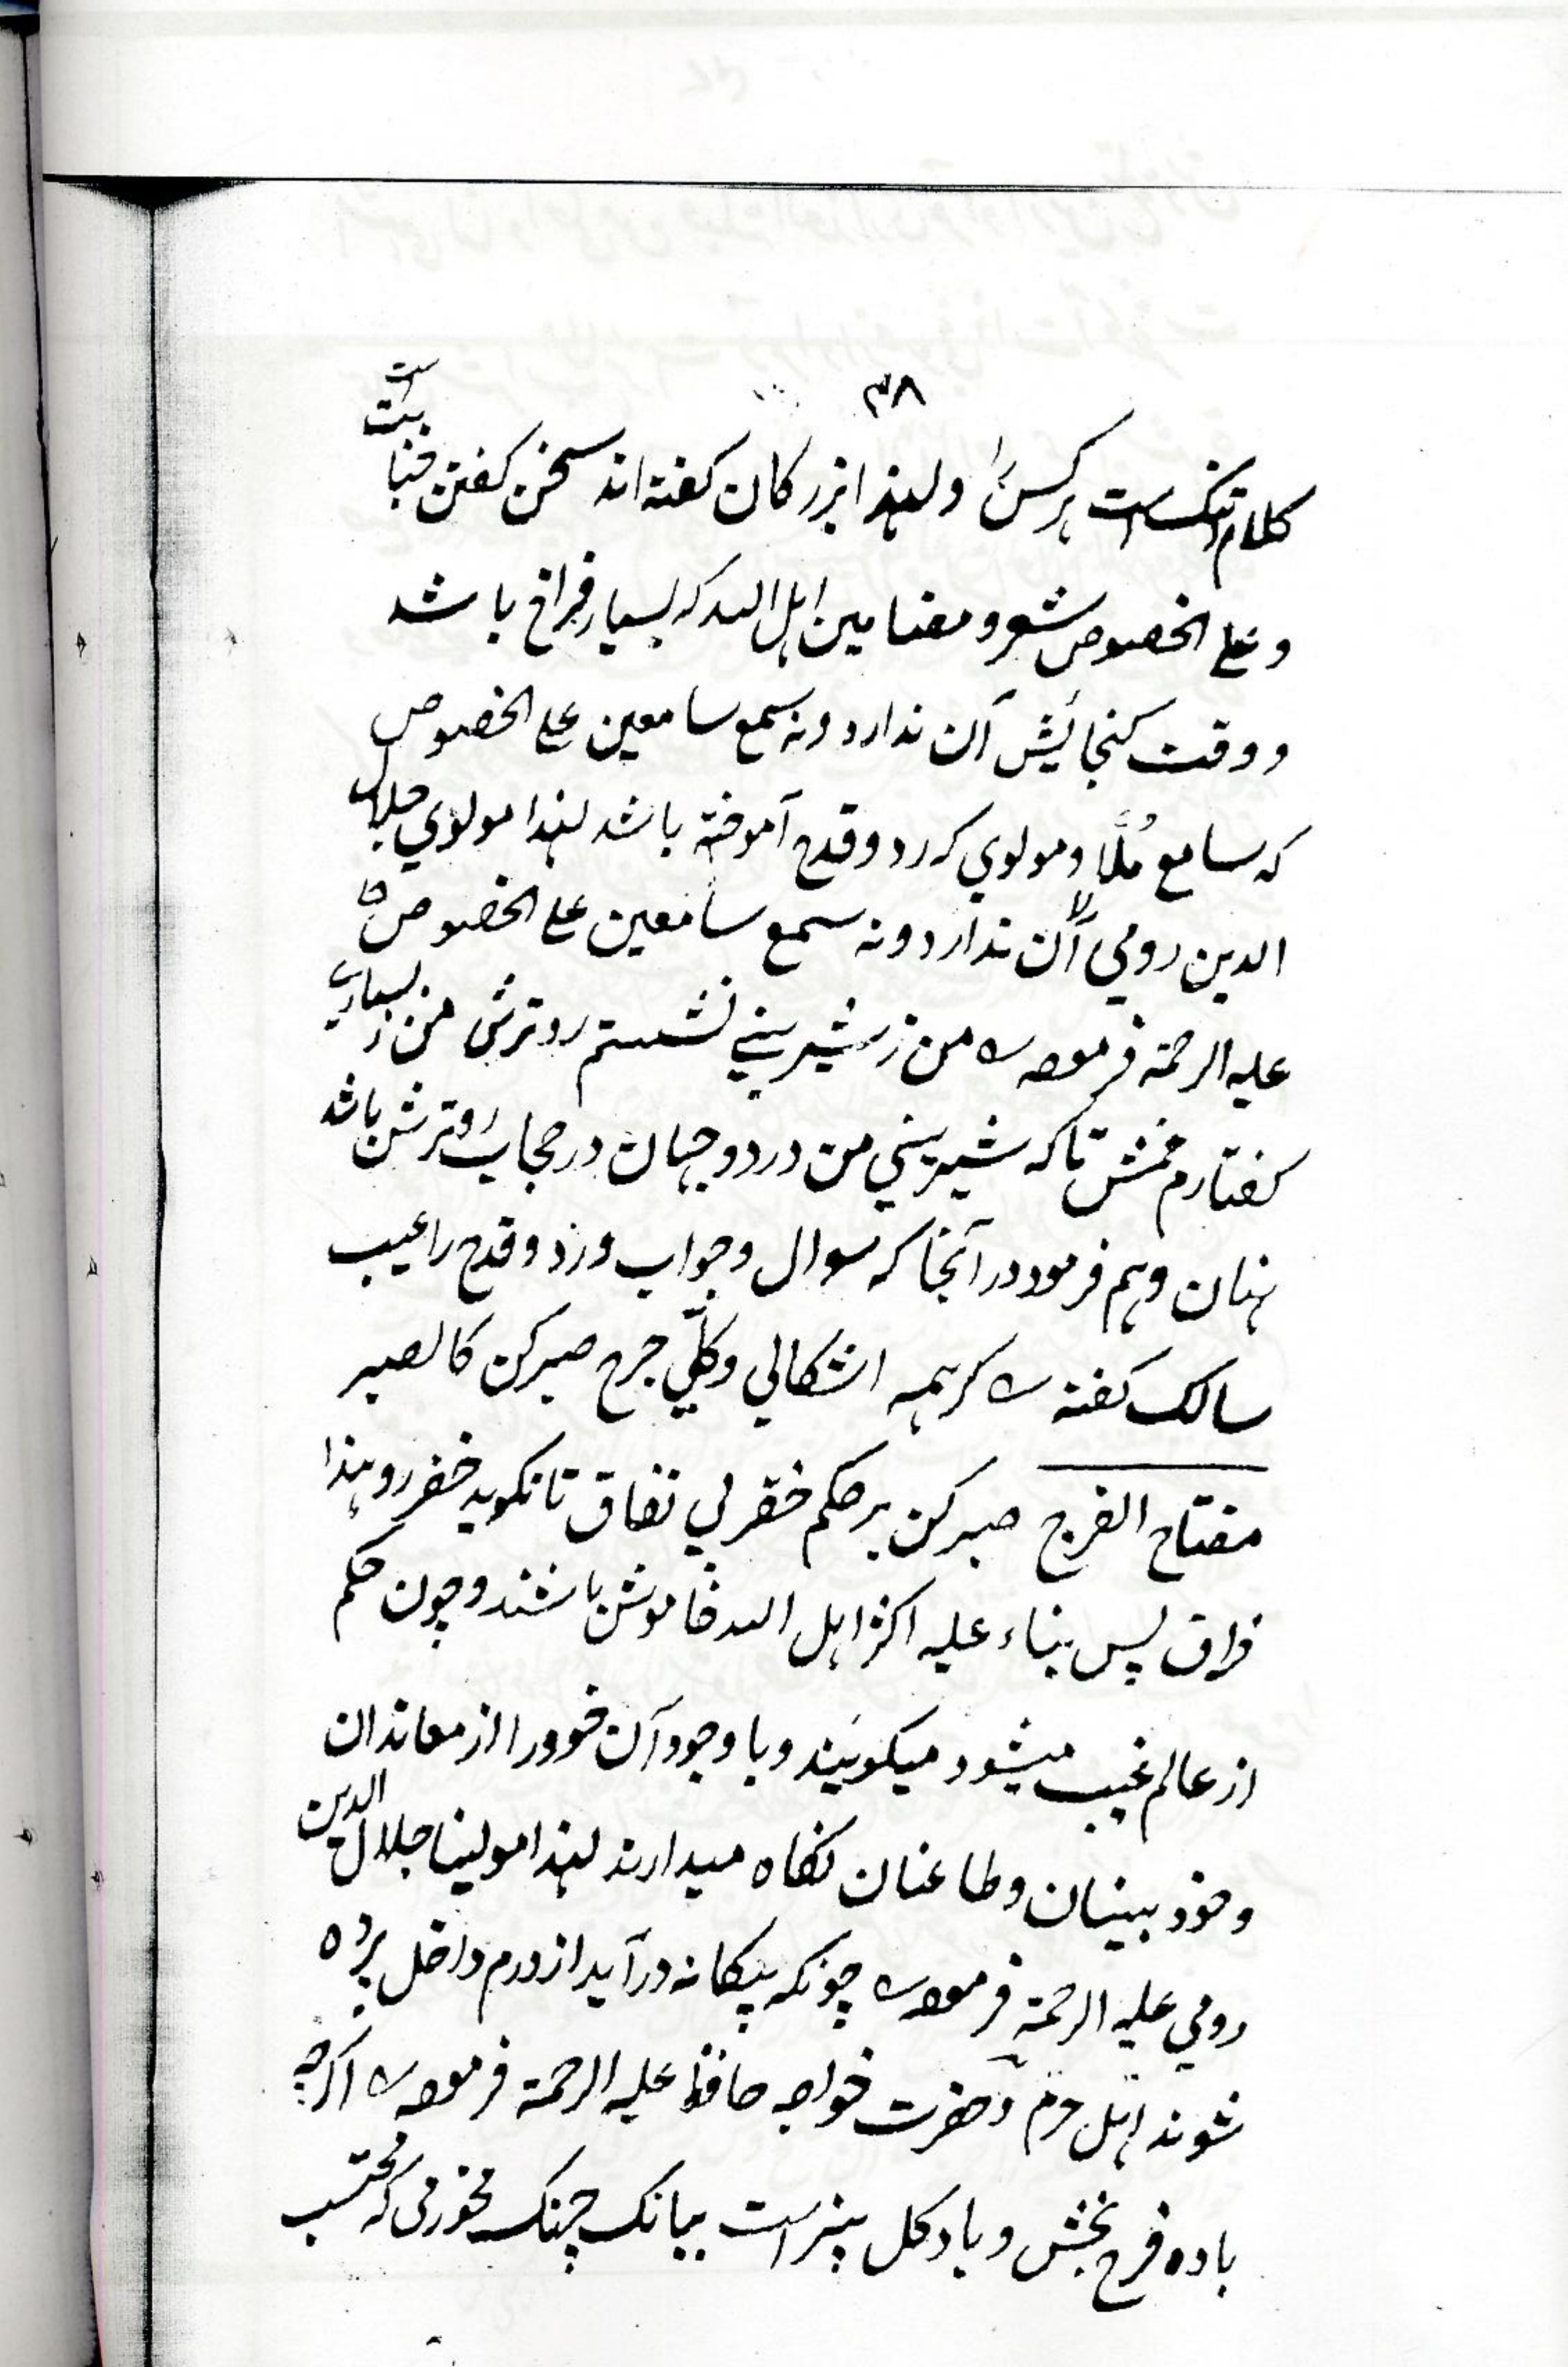 ۳۸
کلام تنکست برکس را ولهذا بزرکان کفته اند سخن کفتن خبائت است
و علی الخصوص شعر و مضامین اهل الله که بسیار فراخ باشد
و وقت کنجایش آن ندارد و نه سمع سامعین علی الخصوص
که سامع مُلّا و مولوي که رد و قدح آموخته باشد لهذا مولوي جلال
الدین رومي آن ندارد و نه سمع سامعین علی الخصوص
علیه الرحمة فرموده من ز شیریني نشستم رو ترش من ز بسیاري
کفتارم خمش تا که شیریني من در دو جهان در حجاب رو ترش باشد
نهان و هم فرمود در آنجا که سوال و جواب و رد و قدح را عیب
سالک کفته که همه اشکالي و کلّي جرح صبر کن کالصبر
مفتاح الفرج صبر کن بر حکم خضر بي نفاق تا نکوید خضر رو هذا
فراق پس بناء علیه اکثر اهل الله خاموش باشند و چون حکم
از عالم غیب میشود میکویند و با وجود آن خود را از معاندان
و خود بینان و طاعنان نکاه میدارند لهذا مولینا جلال الدین
رومي علیه الرحمة فرموده چونکه بیکانه در آید از درم داخل پرده
شوند اهل حرم و حضرت خواجه حافظ علیه الرحمة فرموده اکرچه
باده فرح بخش و باد کل بیز است ببانک چنک مخور می که محتسب